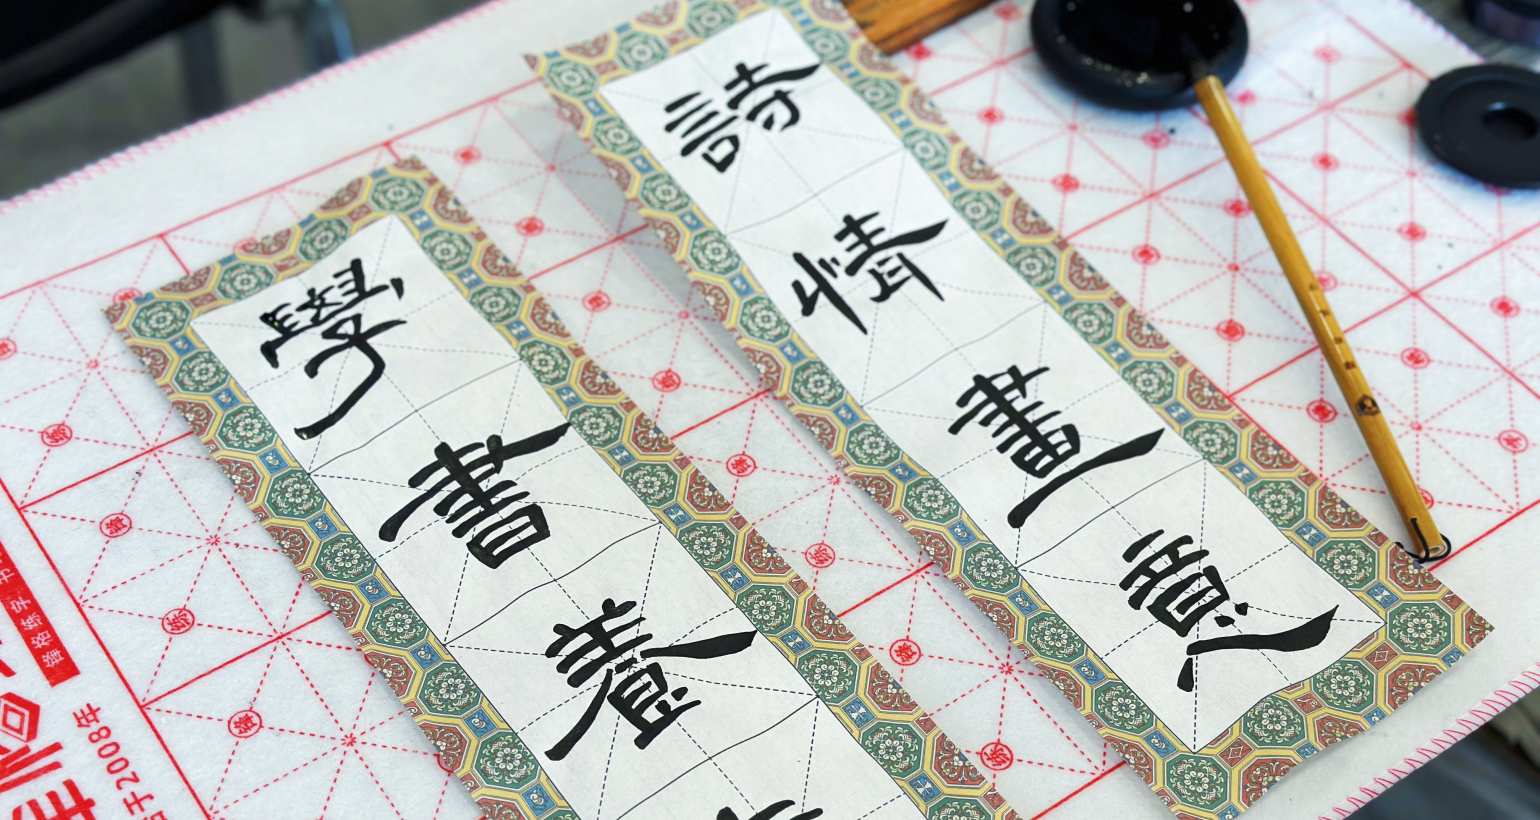 詩情畫意
學書養
于2008年